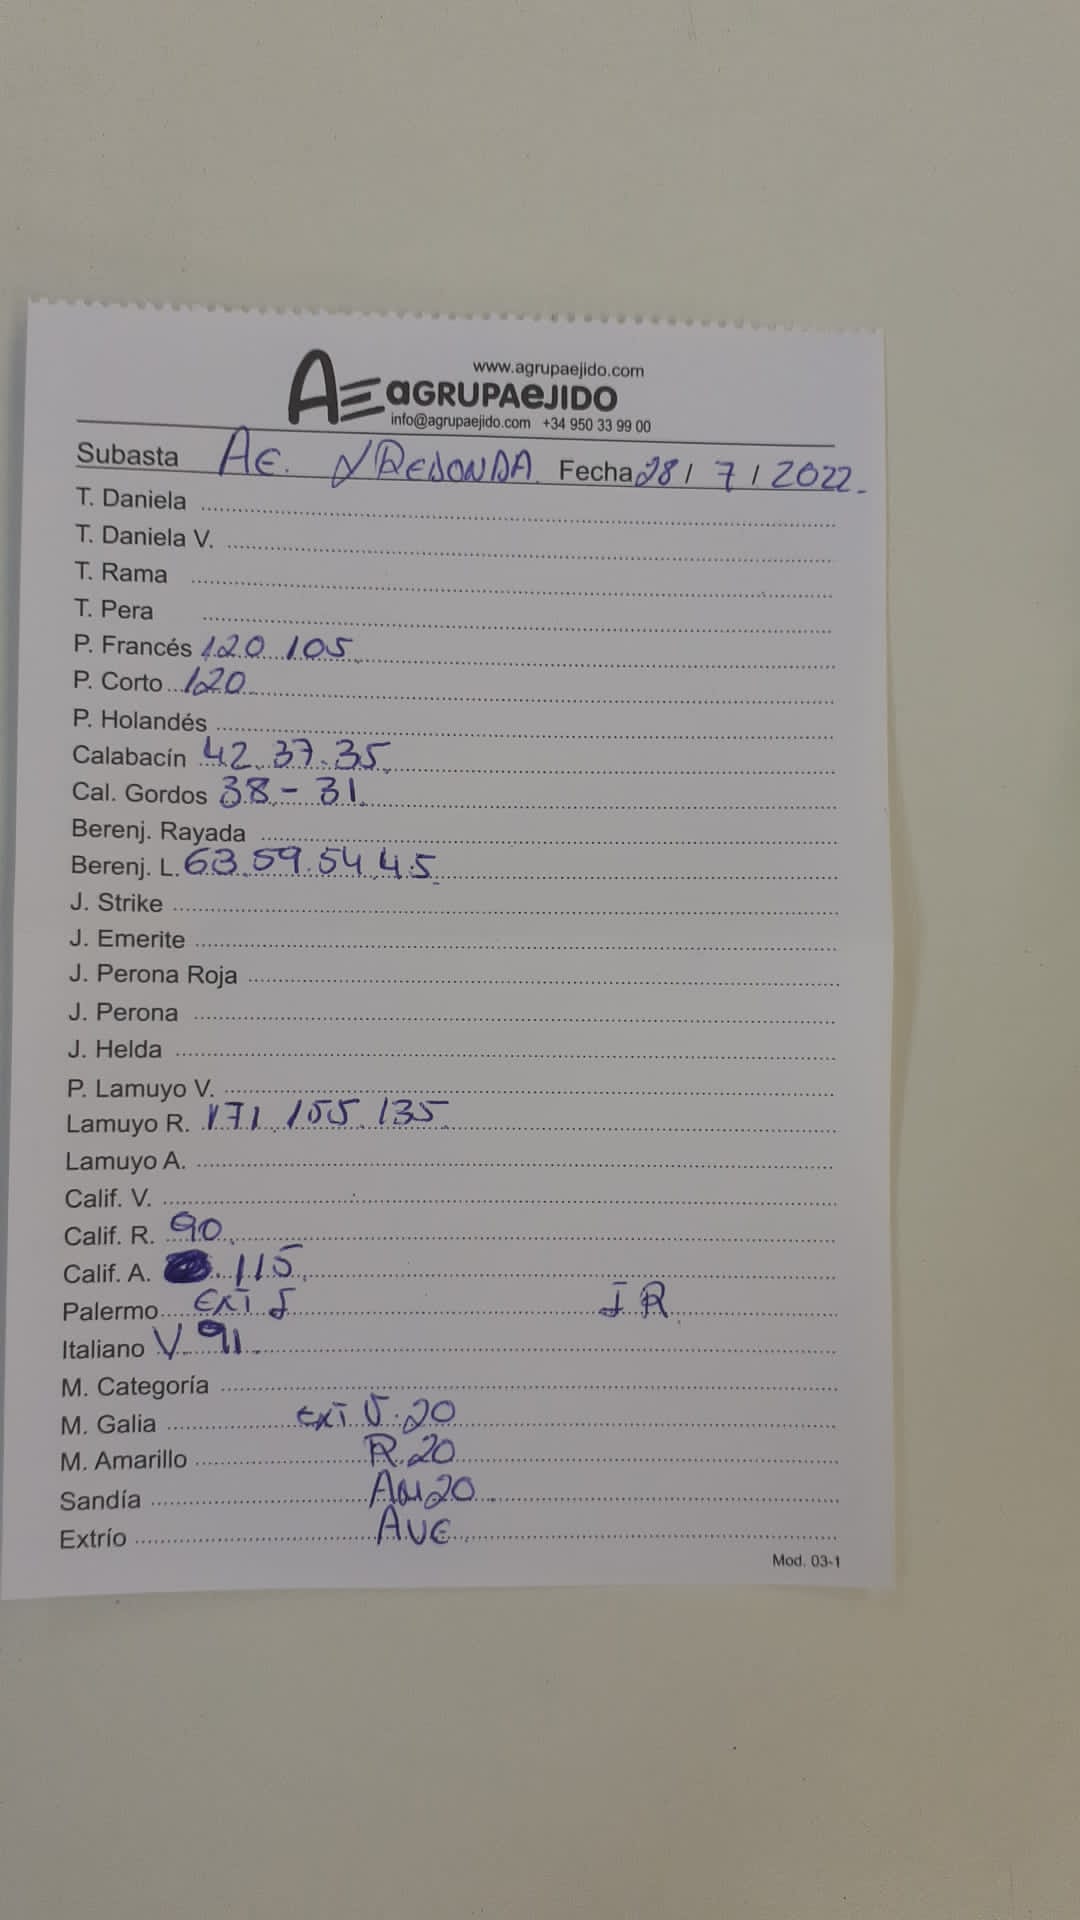 www.agrupaejido.com
AE aGRUPAeJIDO
info@agrupaejido.com +34 950 33 99 00
Subasta AE. REDONDA Fecha 28/7/2022.
T. Daniela
T. Daniela V.
T. Rama
T. Pera
P. Francés 120 105
P. Corto 120
P. Holandés
Calabacín 42.37.35
Cal. Gordos 38 - 31
Berenj. Rayada
Berenj. L. 63.59.54.45
J. Strike
J. Emerite
J. Perona Roja
J. Perona
J. Helda
P. Lamuyo V.
Lamuyo R. 171.155.135
Lamuyo A.
Calif. V.
Calif. R. 90
Calif. A. 115
Palermo EXT
Italiano V. 91
M. Categoría
M. Galia EXT V.20
M. Amarillo R.20
Sandía AM20
Extrío AVE
Mod. 03-1